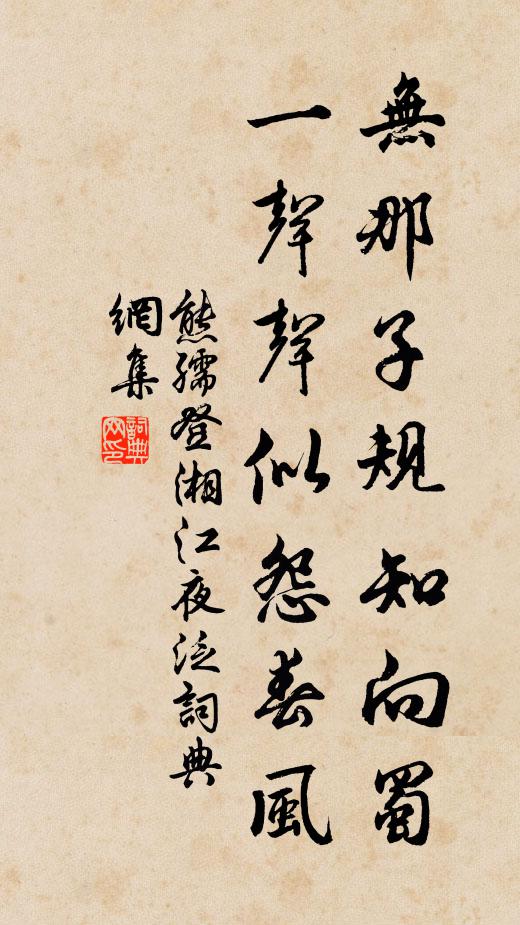 無那子規知向蜀
一聲聲似怨春風
熊孺登湘江夜泛詞典
網集
詞典
网印